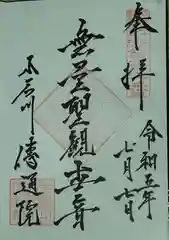 奉拝
令和五年
七月七日
無量聖観世音
小石川
傳通院